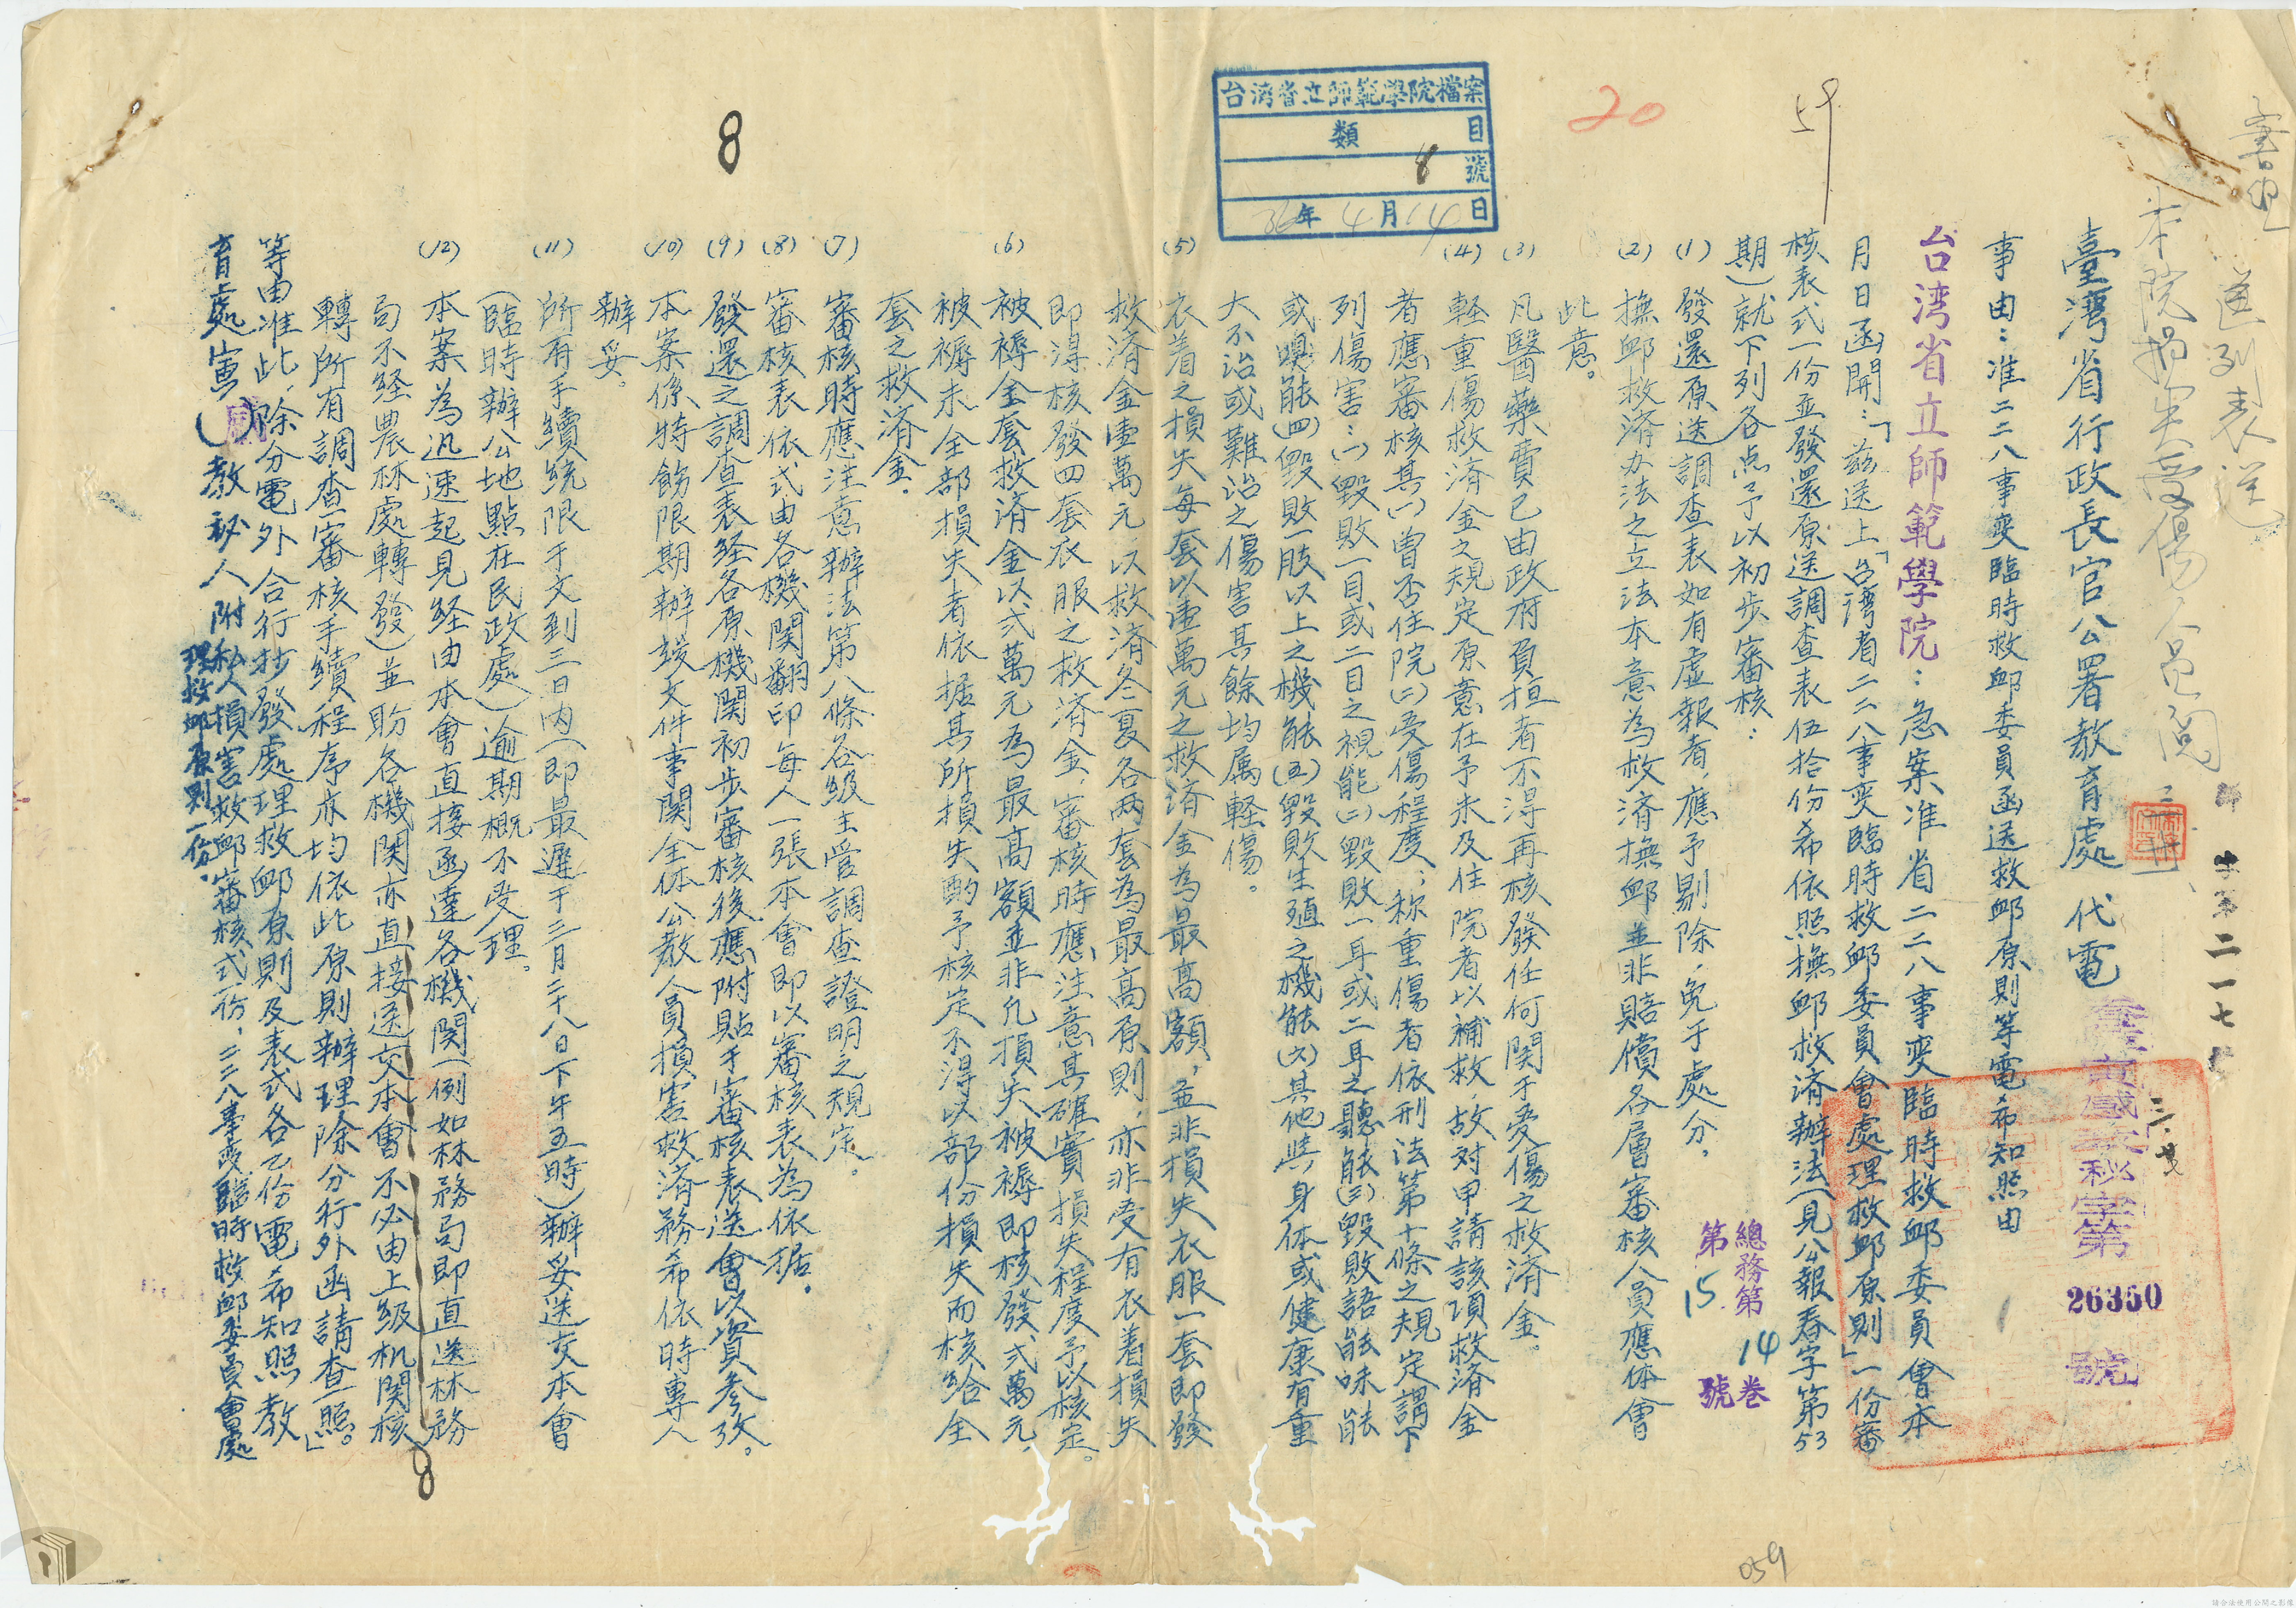 臺灣省行政長官公署教育處代電
事由：准二二八事変臨時救卹委員函送救卹原則等電希知照由
台湾省立師範學院：急案准省二二八事変臨時救卹委員會本
月日函開：「茲送上「台湾省二二八事変臨時救卹委員會處理救卹原則」一份審
核表式一份並發還原送調查表伍拾份希依照撫卹救済辦法（見公報春字第53
期）就下列各点予以初步審核：
(1) 發還原送調查表如有虛報者，應予剔除，免于處分．
(2) 撫卹救済办法之立法本意為救済撫卹並非賠償各層審核人員應体會
此意。
(3) 凡醫藥費已由政府負担者不得再核發任何関于受傷之救済金。
(4) 軽重傷救済金之規定原意在予未及住院者以補救，故対申請該項救済金
者應審核其(一)曾否住院(二)受傷程度；称重傷者依刑法第十條之規定謂下
列傷害：(一)毀敗一目或二目之視能(二)毀敗一耳或二耳之聽能(三)毀敗語能味能
或嗅能(四)毀敗一肢以上之機能(五)毀敗生殖之機能(六)其他與身体或健康有重
大不治或難治之傷害其餘均属軽傷。
(5) 衣着之損失每套以壹萬元之救済金為最高額，並非損失衣服一套即發
救済金壹萬元，以救済冬夏各両套為最高原則，亦非受有衣着損失
即淂核發四套衣服之救済金，審核時應注意其確實損失程度予以核定。
(6) 被褥全套救済金以弍萬元為最高額並非凡損失被褥即核發弍萬元
被褥未全部損失者依据其所損失酌予核定不淂以部份損失而核給全
套之救済金．
(7) 審核時應注意辦法第八條各級主管調查證明之規定。
(8) 審核表依式由各機関翻印每人一張本會即以審核表為依据．
(9) 發還之調查表経各原機関初步審核後應附貼于審核表送會以資参攷。
(10) 本案係特飭限期辦竣文件事関全体公教人員損害救済務希依時專人
辦妥。
(11) 所有手續統限于文到三日內（即最遲于三月二十八日下午五時）辦妥送交本會
（臨時辦公地點在民政處）逾期概不受理。
(12) 本案為迅速起見経由本會直接函達各機関（例如林務局即直送林務
局不経農林處轉發）並盼各機関亦直接送交本會不必由上級机関核
轉所有調查審核手續程序亦均依此原則辦理除分行外函請查照。」
等由准此，除分電外合行抄發處理救卹原則及表式各乙份電希知照教
育處寅（）教秘人附私人損害救卹審核式一份，二二八事変臨時救卹委員會處
理救卹原則一份．
台湾省立師範學院檔案
類 目
8 號
36年4月14日
總務第14卷
第15號
秘字第
26350
號
20
59
8
8
059